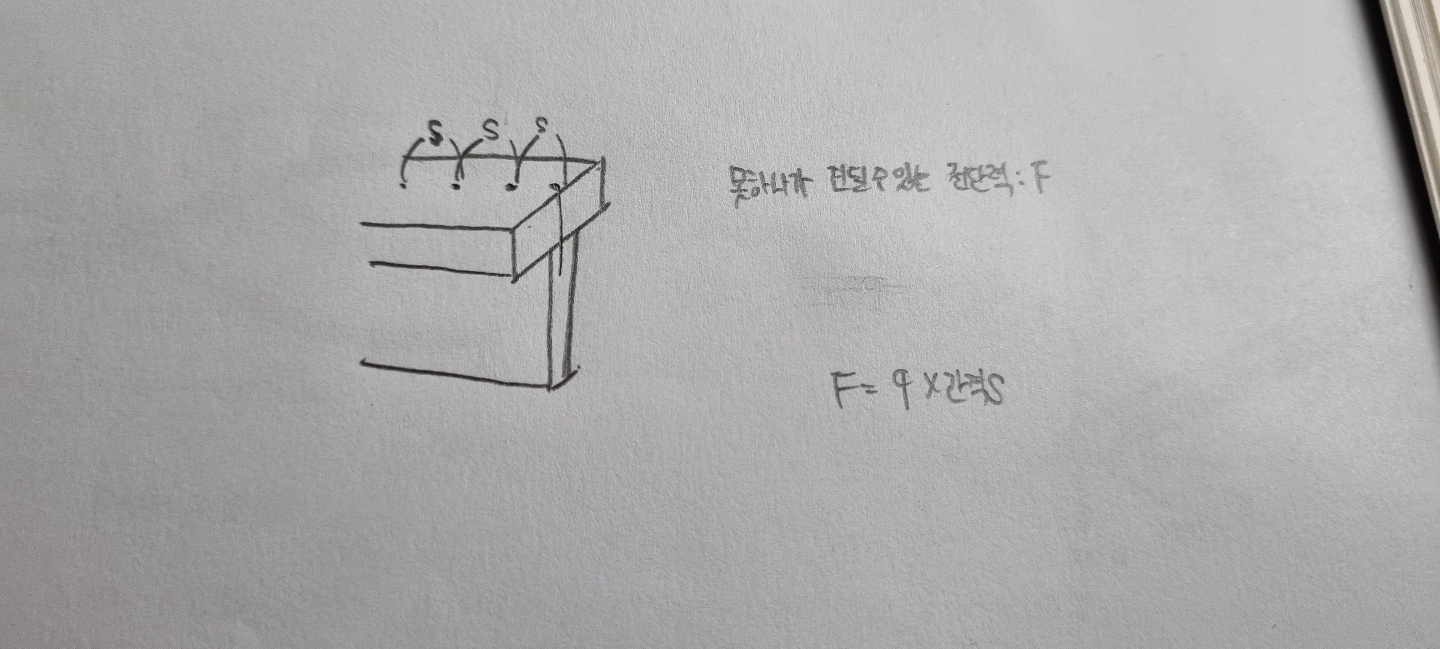 S S S
못하나가 견딜수있는 전단력: F
F= q X간격S